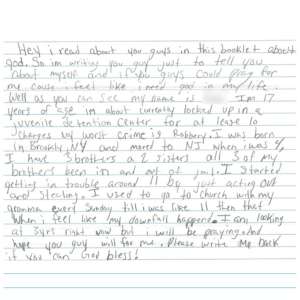 Hey i read about you guys in this booklet about
god. So im writing you guy just to tell you
About myself and if you guys could pray for
me cause i feel like i need god in my life.
Well as you can see my name is I'm 17
years of age im about currently locked up in a
juvenile Detention Center for at lease
charges my worst crime is Robbery. I was born
in Brooklyn, NY and moved to NJ when i was
I have 3 brothers a 2 sisters all 3 of my
brothers been in and of of jail. I started
getting in trouble around 11 by just acting out
and stealing. I used to go to church with my
gramma every Sunday till i was like 11 then that
when i feel like my downfall happend. I am looking
at 3yrs right now but i will be praying. And
hope you guy will for me. Please write me back
if you can God bless!